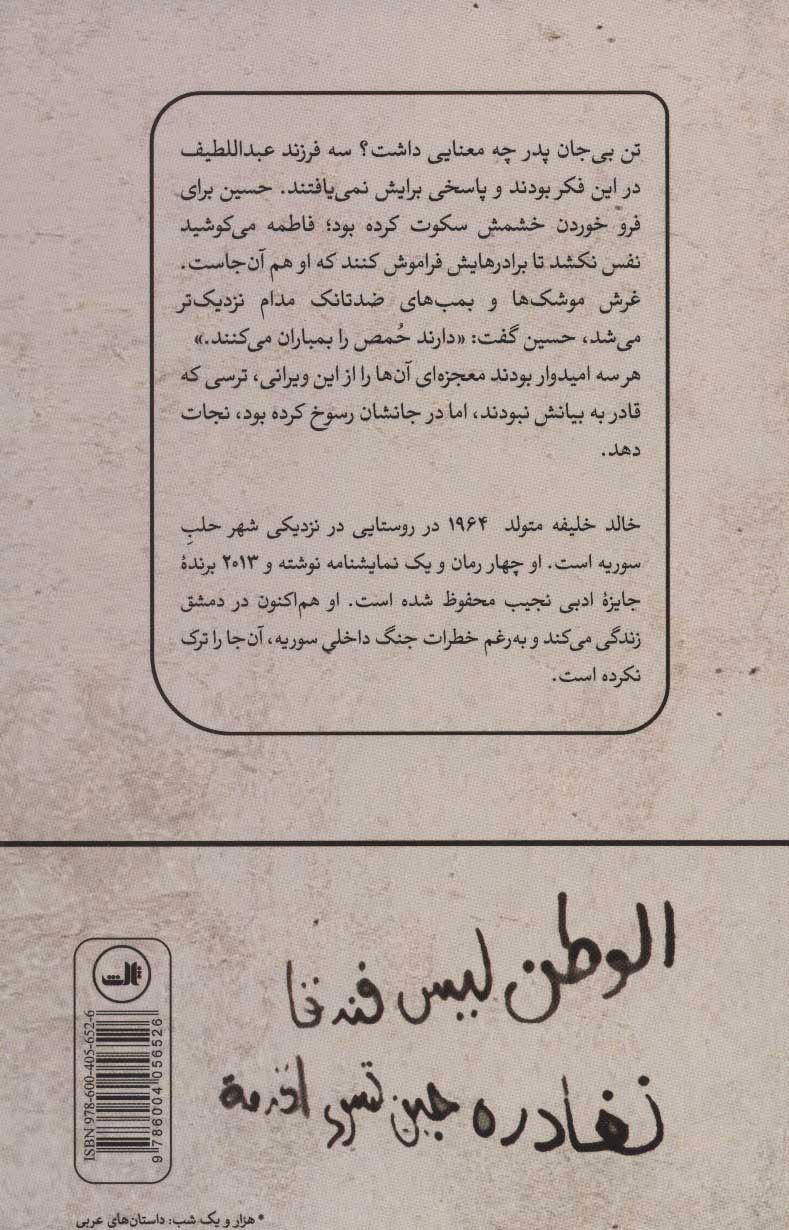 تن بی‌جان پدر چه معنایی داشت؟ سه فرزند عبداللطیف
در این فکر بودند و پاسخی برایش نمی‌یافتند. حسین برای
فرو خوردن خشمش سکوت کرده بود؛ فاطمه می‌کوشید
نفس نکشد تا برادرهایش فراموش کنند که او هم آن‌جاست.
غرش موشک‌ها و بمب‌های ضدتانک مدام نزدیک‌تر
می‌شد، حسین گفت: «دارند حُمص را بمباران می‌کنند.»
هر سه امیدوار بودند معجزه‌ای آن‌ها را از این ویرانی، ترسی که
قادر به بیانش نبودند، اما در جانشان رسوخ کرده بود، نجات
دهد.
خالد خلیفه متولد ۱۹۶۴ در روستایی در نزدیکی شهر حلبِ
سوریه است. او چهار رمان و یک نمایشنامه نوشته و ۲۰۱۳ برندهٔ
جایزهٔ ادبی نجیب محفوظ شده است. او هم‌اکنون در دمشق
زندگی می‌کند و به‌رغم خطرات جنگ داخلی سوریه، آن‌جا را ترک
نکرده است.
الوطن ليس فندقا
نغادره حين تسوء
ثالث
ISBN 978-600-405-652-6
9 786004 056526
* هزار و یک شب: داستان‌های عربی